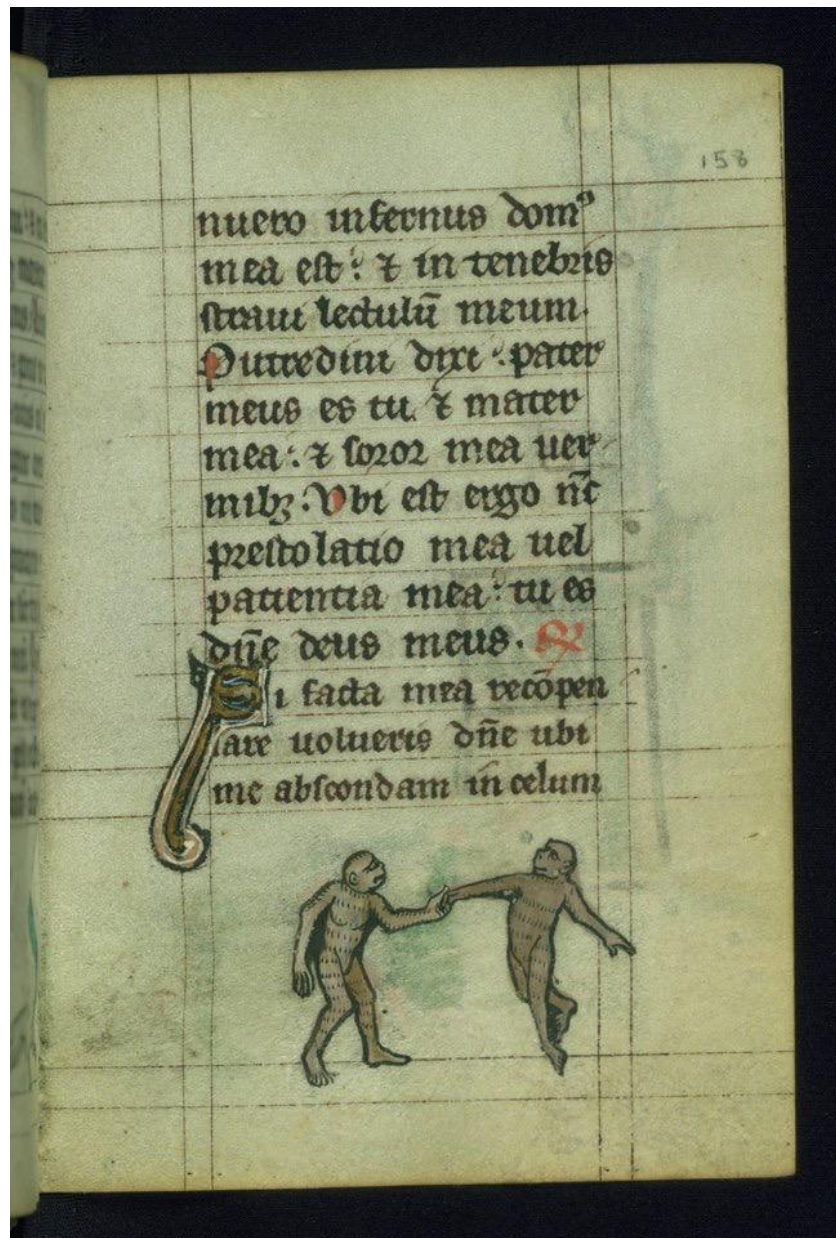 158
nuero infernus domꝰ
mea est: ⁊ in tenebris
straui lectulū meum.
Putredini dixi: pater
meus es tu. ⁊ mater
mea: ⁊ soror mea uer
mibꝫ. Vbi est ergo nūc
prestolatio mea uel
patientia mea: tu es
dn̄e deus meus.
Si facta mea recōpen
sare uolueris dn̄e ubi
me abscondam in celum